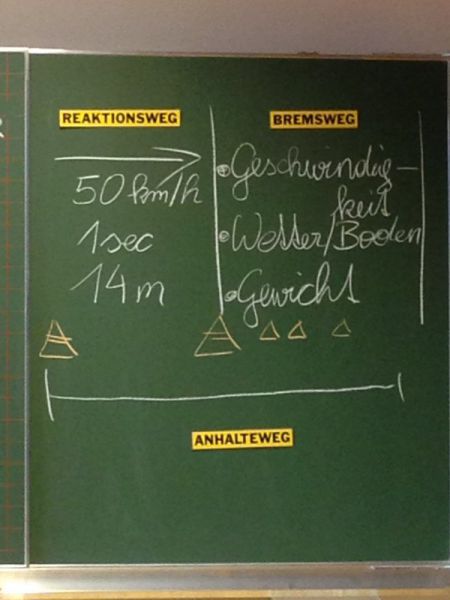 REAKTIONSWEG
50 km/h
1 sec
14 m
BREMSWEG
Geschwindig-
keit
Wetter/Boden
Gewicht
ANHALTEWEG